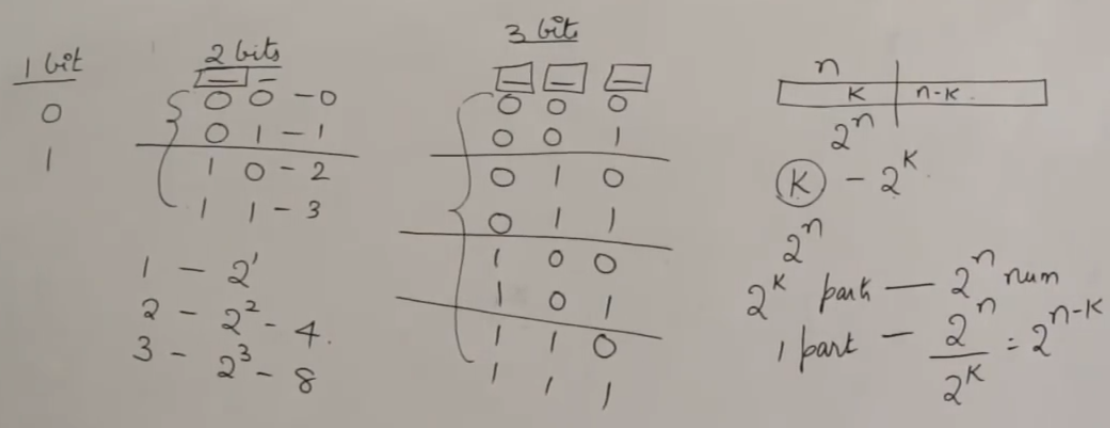 1 bit
0
1
2 bits
0 0 - 0
0 1 - 1
1 0 - 2
1 1 - 3
1 - 2¹
2 - 2² - 4.
3 - 2³ - 8
3 bits
0 0 0
0 0 1
0 1 0
0 1 1
1 0 0
1 0 1
1 1 0
1 1 1
n
K n-K.
2ⁿ
K - 2ᴷ.
2ⁿ
2ᴷ parts — 2ⁿ num
1 part — 2ⁿ/2ᴷ = 2ⁿ⁻ᴷ